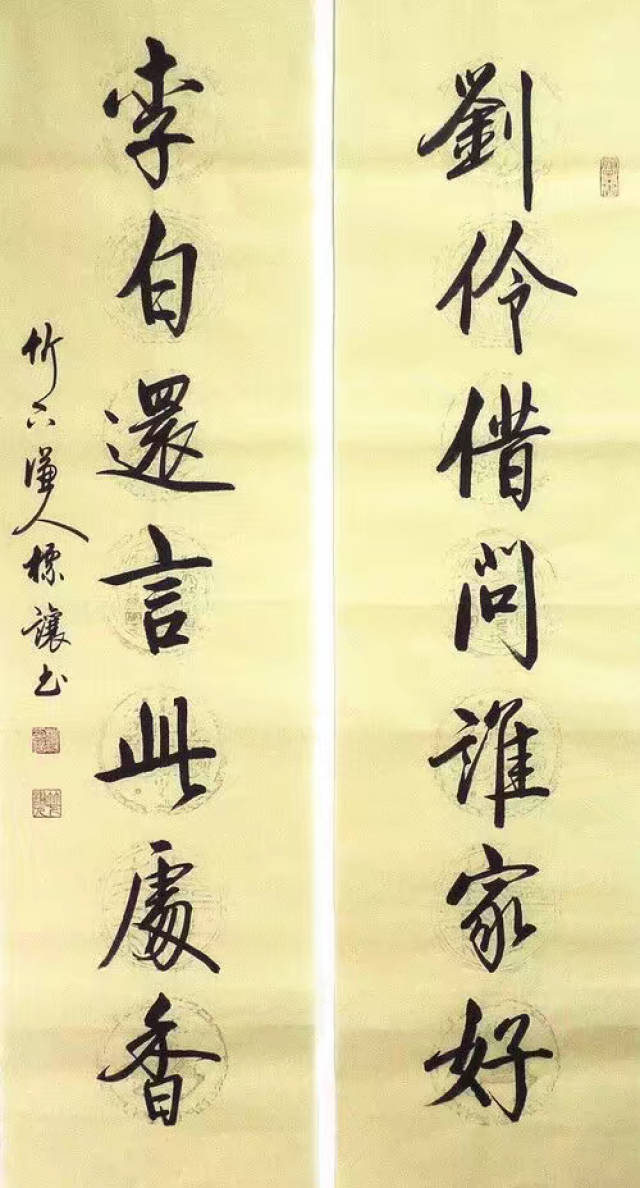 劉伶借問誰家好
李白還言此處香
竹下謙人標讓书